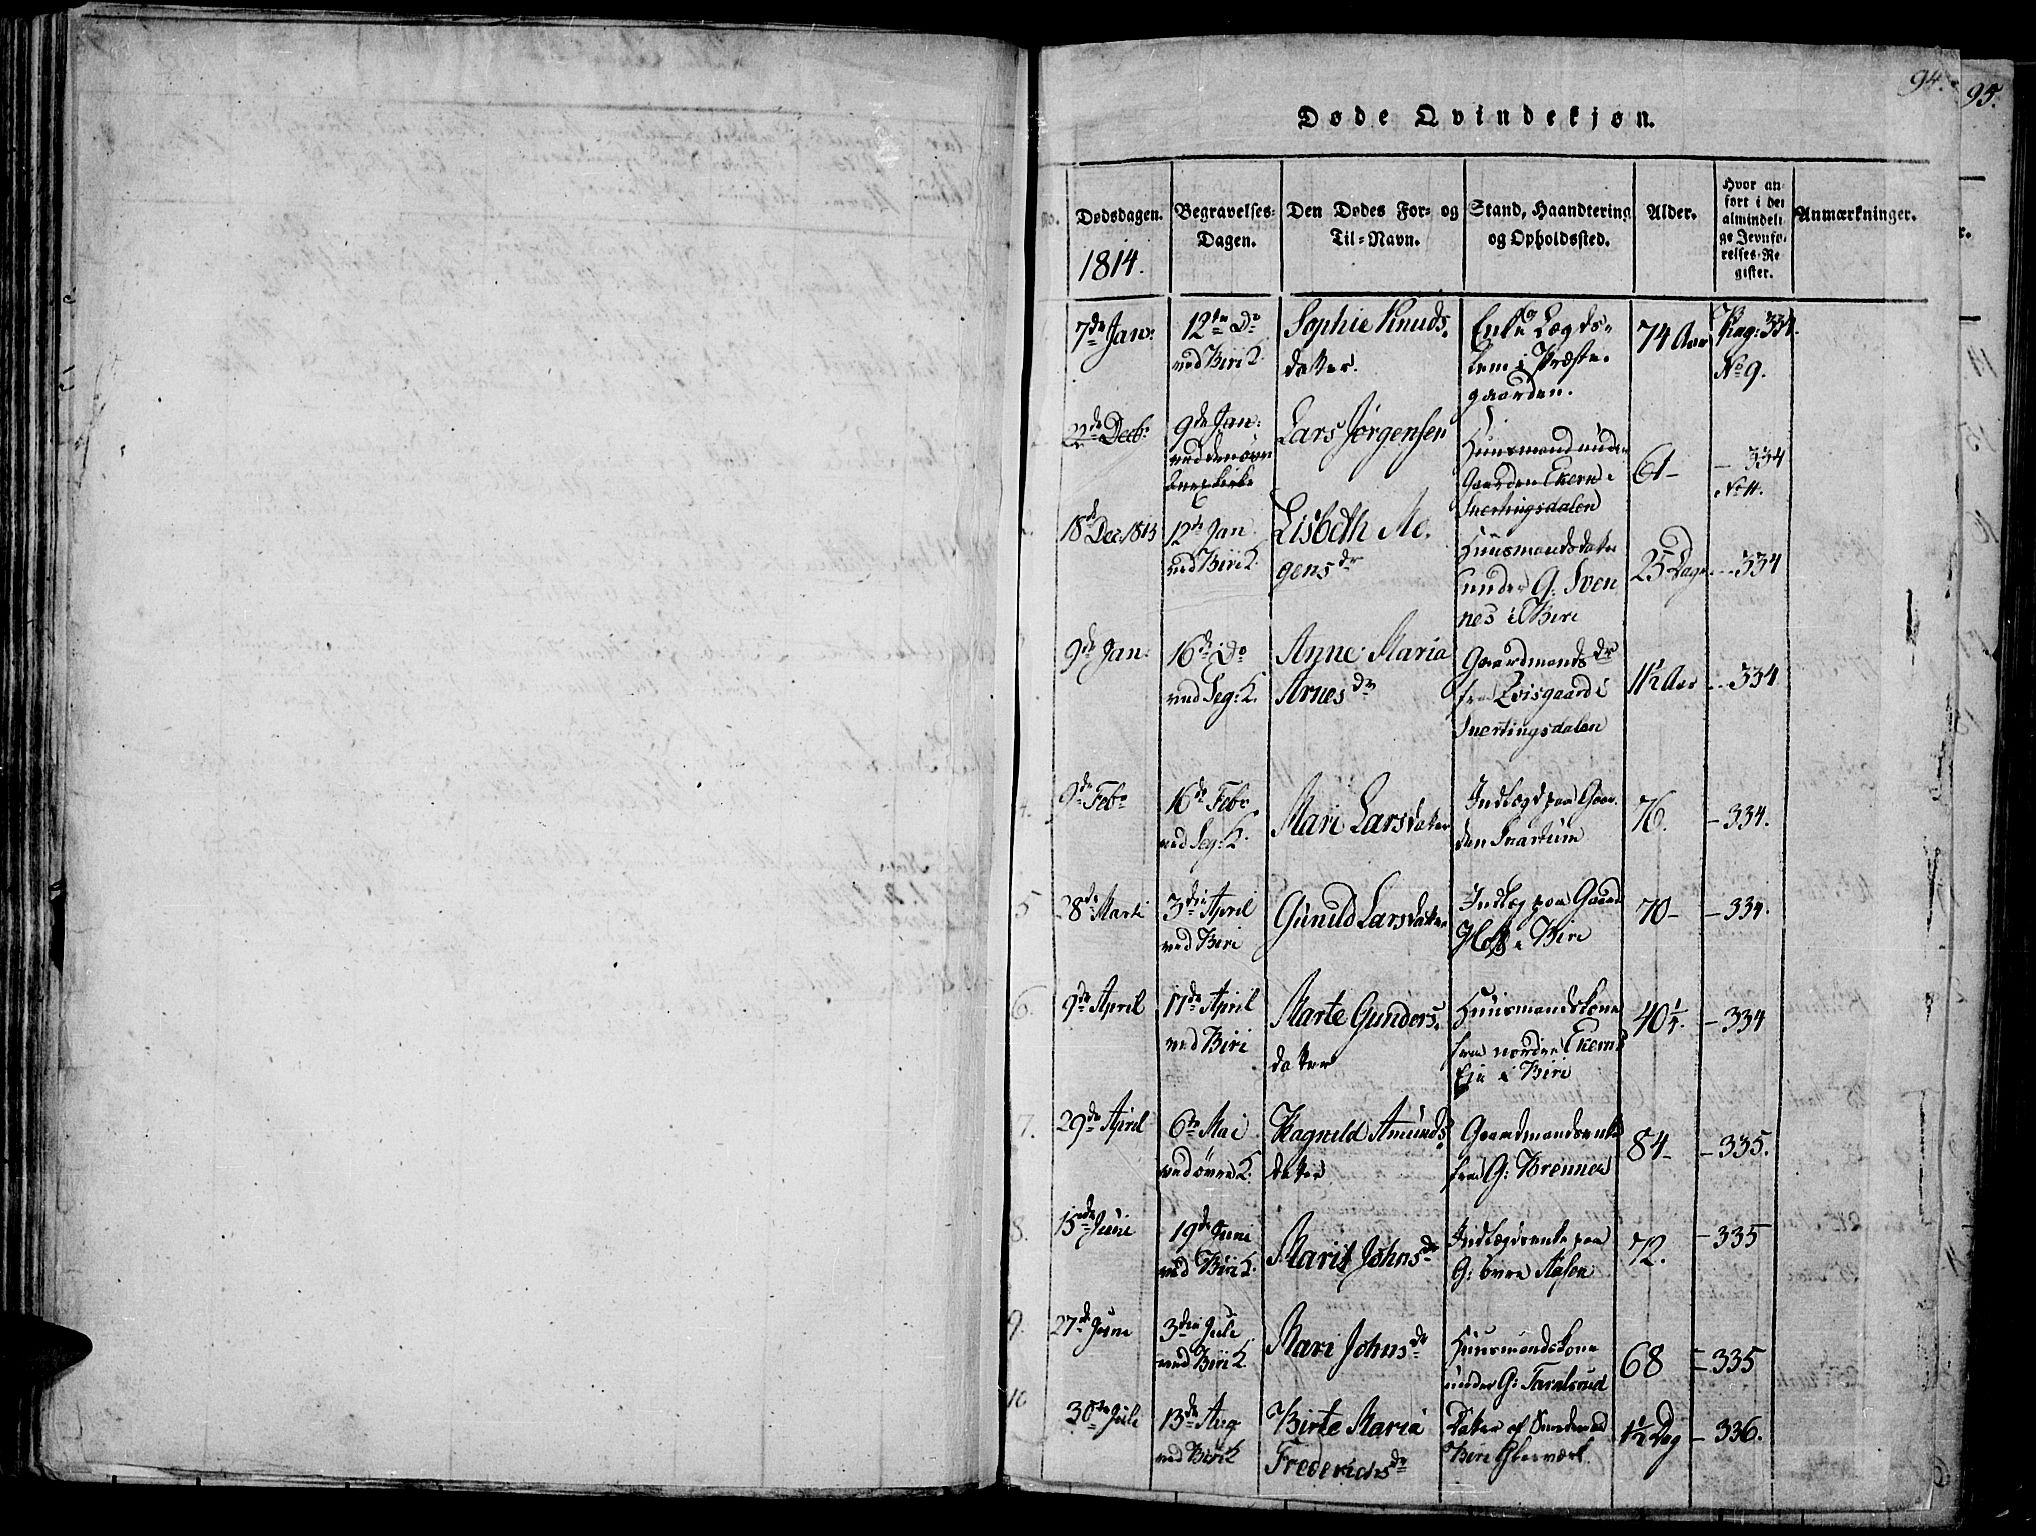 94.
95.
Døde Qvindekjøn.
No.
Dødsdagen.
1814.
Begravelses-
Dagen.
Den Dødes For- og
Til-Navn.
Stand, Haandtering
og Opholdssted.
Alder.
Hvor an-
ført i det
almindeli-
ge Jevnfø-
relses-Re-
gister.
Anmærkninger.
7de Jan:
12te Do
ved Biri K.
Sophie Knuds-
datter.
Enke Lægds-
lem i Præste-
gaarden.
74 Aar
Pag: 334.
No 9.
22de Decbr
9de Jan:
Lars Jørgensen
Huusmand under
Gaarden Ekern i
Snertingsdalen
61
– 334
No 11.
18de Dec. 1813
12te Jan
ved Biri K.
Lisbeth Mo-
gensdr
Huusmandsdatter
under G: Sven
nes i Biri
25 Dage
– 334
9de Jan:
16de Do
ved Seg: K.
Anne Maria
Arnesdr
Gaardmandsdr
fra
Snertingsdalen
11½ Aar
– 334
4.
9de Febr
16de Febr
ved Seg: K.
Mari Larsdatter
Indlagd paa Gaar
den Svartum
76.
– 334.
5
28de Marti
3die April
ved Biri
Gunild Larsdatter
Indlæg paa Gaard
Hoff i Biri
70–
– 334.
6.
9de April
17de April
ved Biri
Marte Gunders-
datter
Huusmandskone
fra nordre Ekern
Eje i Biri
40¼.
– 334
7.
29de April
6te Mai
ved øvre K.
Ragnild Amunds-
datter
Gaardmandsenke
fra G: Brennen
84–
– 335.
8.
15de Juni
19de Juni
ved Biri K.
Marit Johnsdr
Indlægdsenke paa
G:
72.
– 335
9.
27de June
3die Juli
ved Biri K.
Mari Johnsdr
Huusmandskone
under G:
68
– 335
10
30te Juli
13de Aug
ved Biri K
Birte Maria
Frederichsdr
Datter af
Biri Glasværk.
1½ Dag
– 336.